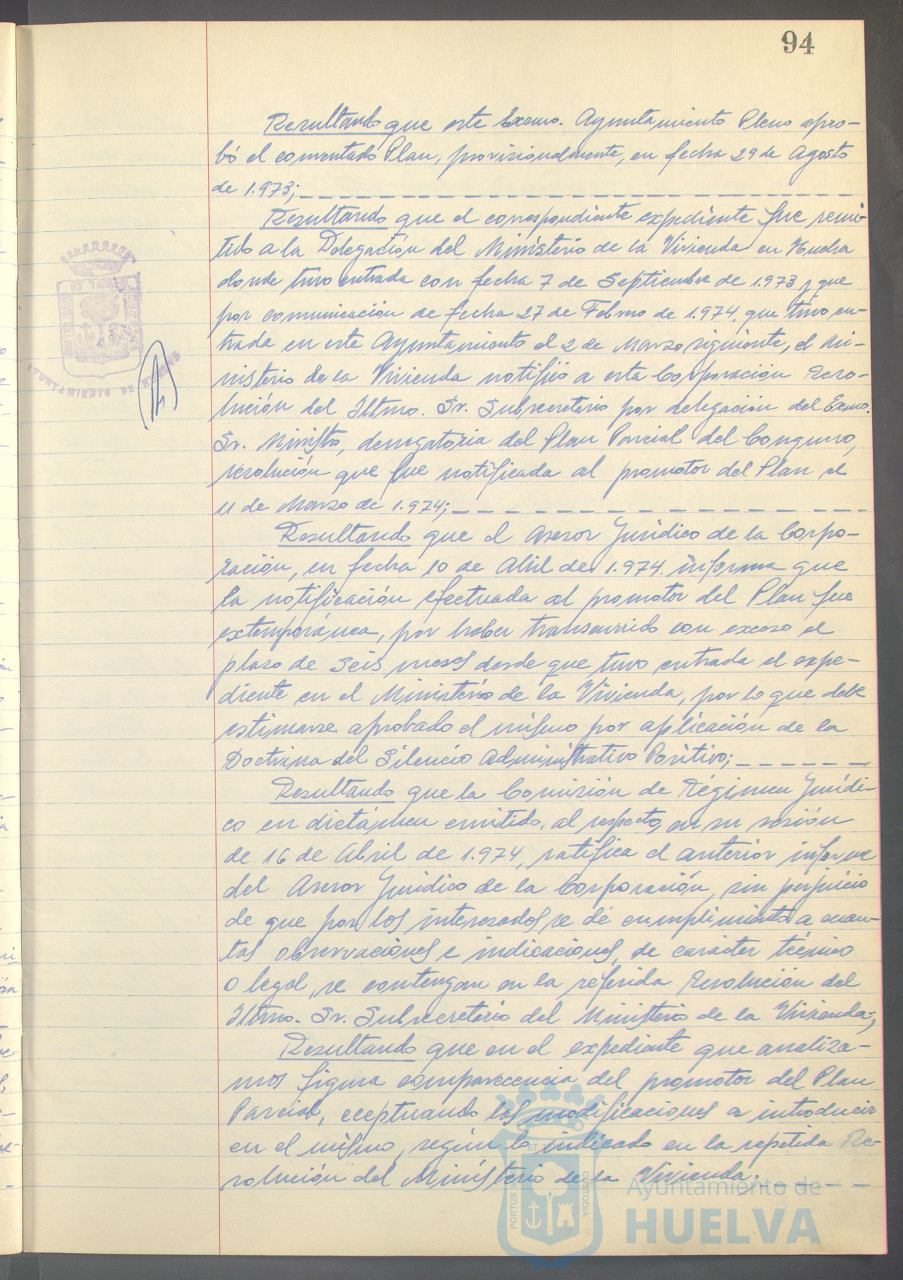 94
Resultando que este Excmo. Ayuntamiento Pleno apro-
bó el comentado Plan, provisionalmente, en fecha 29 de Agosto
de 1.973;
Resultando que el correspondiente expediente fue remi-
tido a la Delegación del Ministerio de la Vivienda en Huelva
donde tuvo entrada con fecha 7 de Septiembre de 1.973 y que
por comunicación de fecha 27 de Febrero de 1.974, que tuvo en-
trada en este Ayuntamiento el 2 de Marzo siguiente, el Mi-
nisterio de la Vivienda notificó a esta Corporación Reso-
lución del Iltmo. Sr. Subsecretario por delegación del Excmo.
Sr. Ministro, denegatoria del Plan Parcial del Conquero,
resolución que fue notificada al promotor del Plan el
11 de Marzo de 1.974;
Resultando que el Asesor Jurídico de la Corpo-
ración, en fecha 10 de Abril de 1.974 informa que
la notificación efectuada al promotor del Plan fue
extemporánea, por haber transcurrido con exceso el
plazo de Seis meses desde que tuvo entrada el expe-
diente en el Ministerio de la Vivienda, por lo que debe
estimarse aprobado el mismo por aplicación de la
Doctrina del Silencio Administrativo Positivo;
Resultando que la Comisión de Régimen Jurídi-
co en dictámen emitido, al respecto, en su sesión
de 16 de Abril de 1.974, ratifica el anterior informe
del Asesor Jurídico de la Corporación, sin perjuicio
de que por los interesados se dé cumplimiento a cuan-
tas observaciones e indicaciones, de carácter técnico
o legal, se contengan en la referida Resolución del
Iltmo. Sr. Subsecretario del Ministerio de la Vivienda;
Resultando que en el expediente que analiza-
mos figura comparecencia del promotor del Plan
Parcial, aceptando las modificaciones a introducir
en el mismo, según lo indicado en la repetida Re-
solución del Ministerio de la Vivienda;
AYUNTAMIENTO DE HUELVA
PORTUS
CUSTODIA
Ayuntamiento de
HUELVA